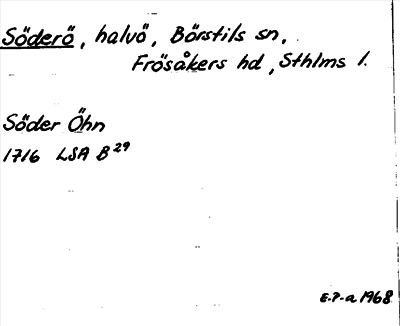 Söderö, halvö, Börstils sn,
Frösåkers hd, Sthlms l.
Söder Öhn
1716 LSA B 29
E.P-a 1968